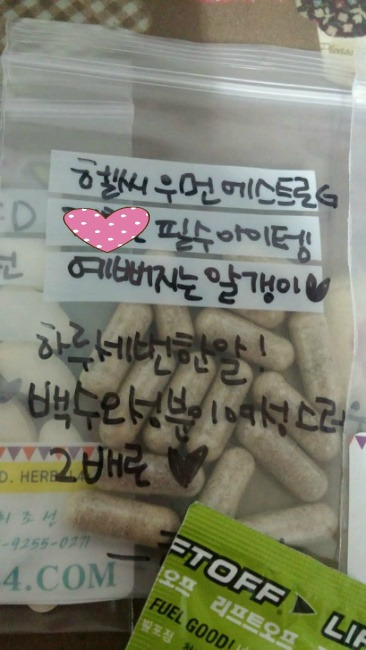 헬씨 우먼 에스트로G
필수아이템!
예뻐지는 알갱이♥
하루세번한알!
백수오성분이여성스러우
2배로 ♥
D. HERB
-9255-0271
4.COM
FTOFF ▶ LIF
오프 리프트오프
FUEL GOOD!
발포정